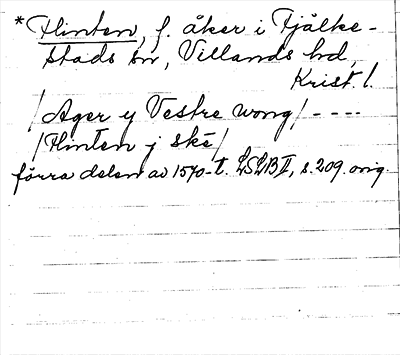 * Hinten, f. åker i Fjälke-
stads sn, Villands hd,
Krist. l.
/Ager y Vestre wong/ ----
/Hinten j ske/
förra delen av 1570-t. LSLB II, s. 209. orig.